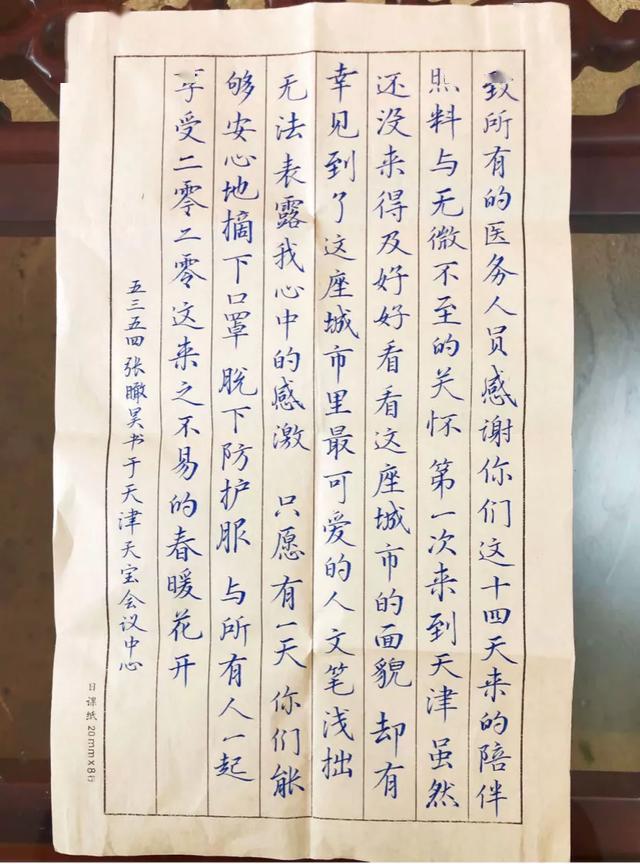 致所有的医务人员感谢你们这十四天来的陪伴
照料与无微不至的关怀 第一次来到天津 虽然
还没来得及好好看看这座城市的面貌 却有
幸见到了这座城市里最可爱的人 文笔浅拙
无法表露我心中的感激 只愿有一天 你们能
够安心地摘下口罩 脱下防护服 与所有人一起
享受二零二零这来之不易的春暖花开
五三五四 张瞰昊书于天津天宝会议中心
日课纸 20mm×8行